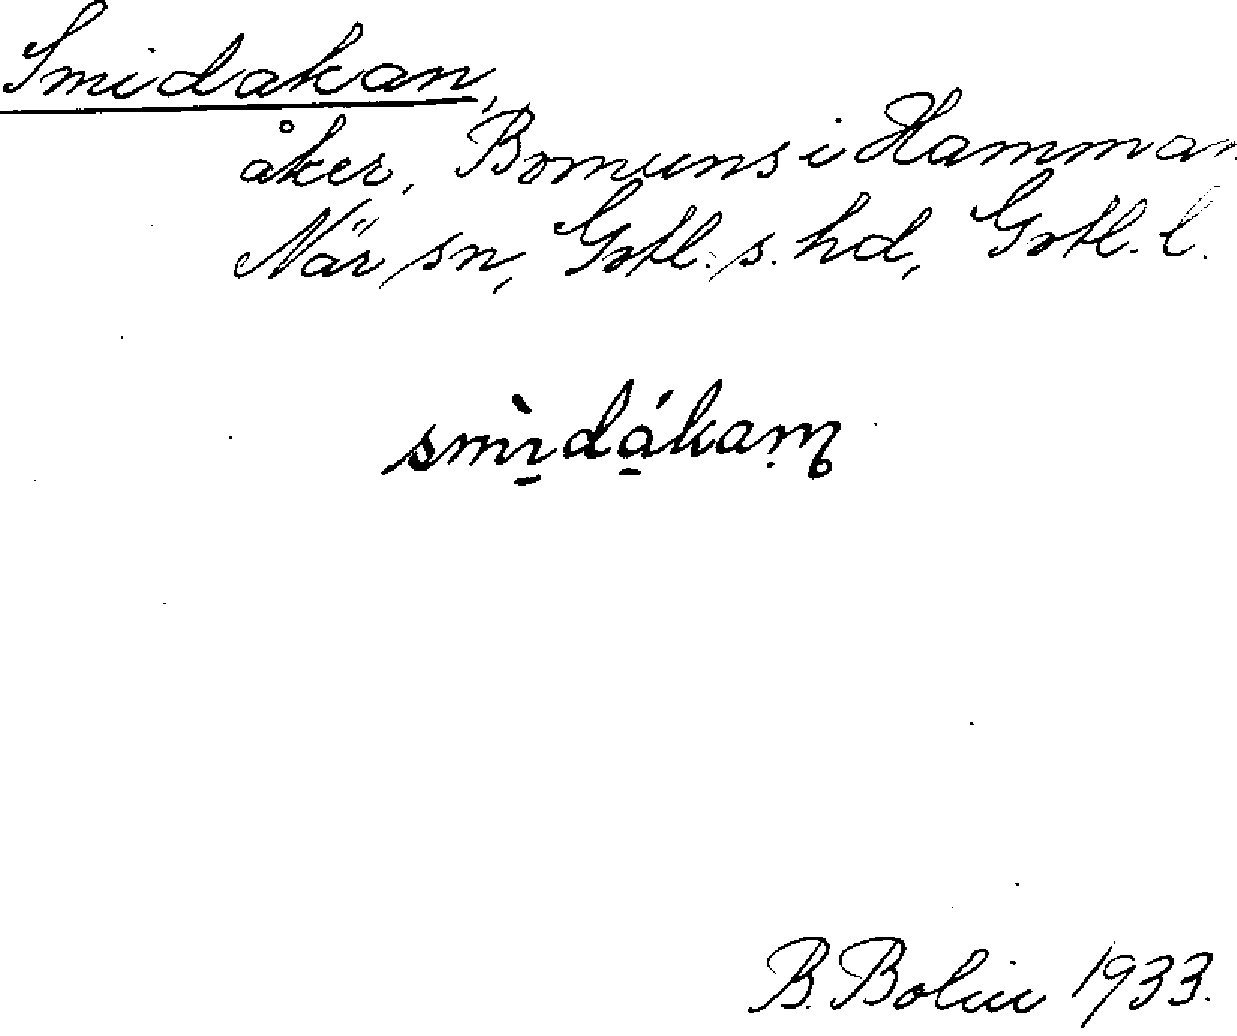 Smidakan,
åker, Bomuns i Hamman
När sn, Gotl. s. hd, Gotl. l.
B. Bolin 1933.